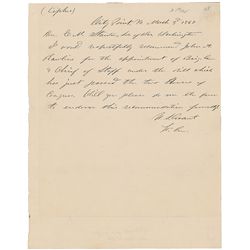 (Cipher)
City Point Va March 3d 1865
Hon. E. M. Stanton, Sec of War Washington
I would respectfully recommend John A.
Rawlins for the appointment of Brig Gen
& Chief of Staff under the bill which
has just passed the two Houses of
Congress. Will you please do me the favor
to endorse this recommendation
U. S. Grant
Lt. Gen